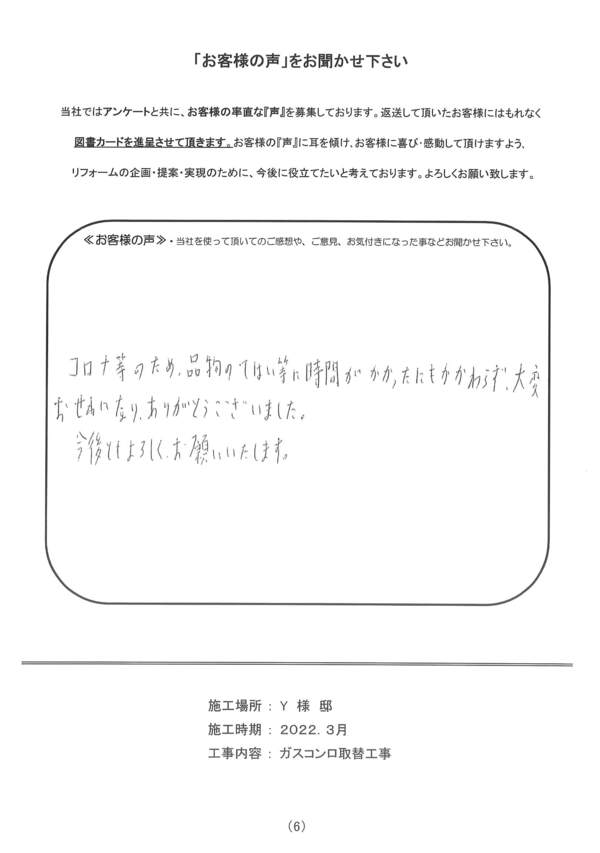 「お客様の声」をお聞かせ下さい
当社ではアンケートと共に、お客様の率直な『声』を募集しております。返送して頂いたお客様にはもれなく
図書カードを進呈させて頂きます。お客様の『声』に耳を傾け、お客様に喜び・感動して頂けますよう、
リフォームの企画・提案・実現のために、今後に役立てたいと考えております。よろしくお願い致します。
≪お客様の声≫・当社を使って頂いてのご感想や、ご意見、お気付きになった事などお聞かせ下さい。
コロナ等のため、品物のてはい等に時間がかかったにもかかわらず、大変
おせわになり、ありがとうございました。
今後ともよろしく、お願いいたします。
施工場所 : Y 様 邸
施工時期 : 2022. 3月
工事内容 : ガスコンロ取替工事
(6)